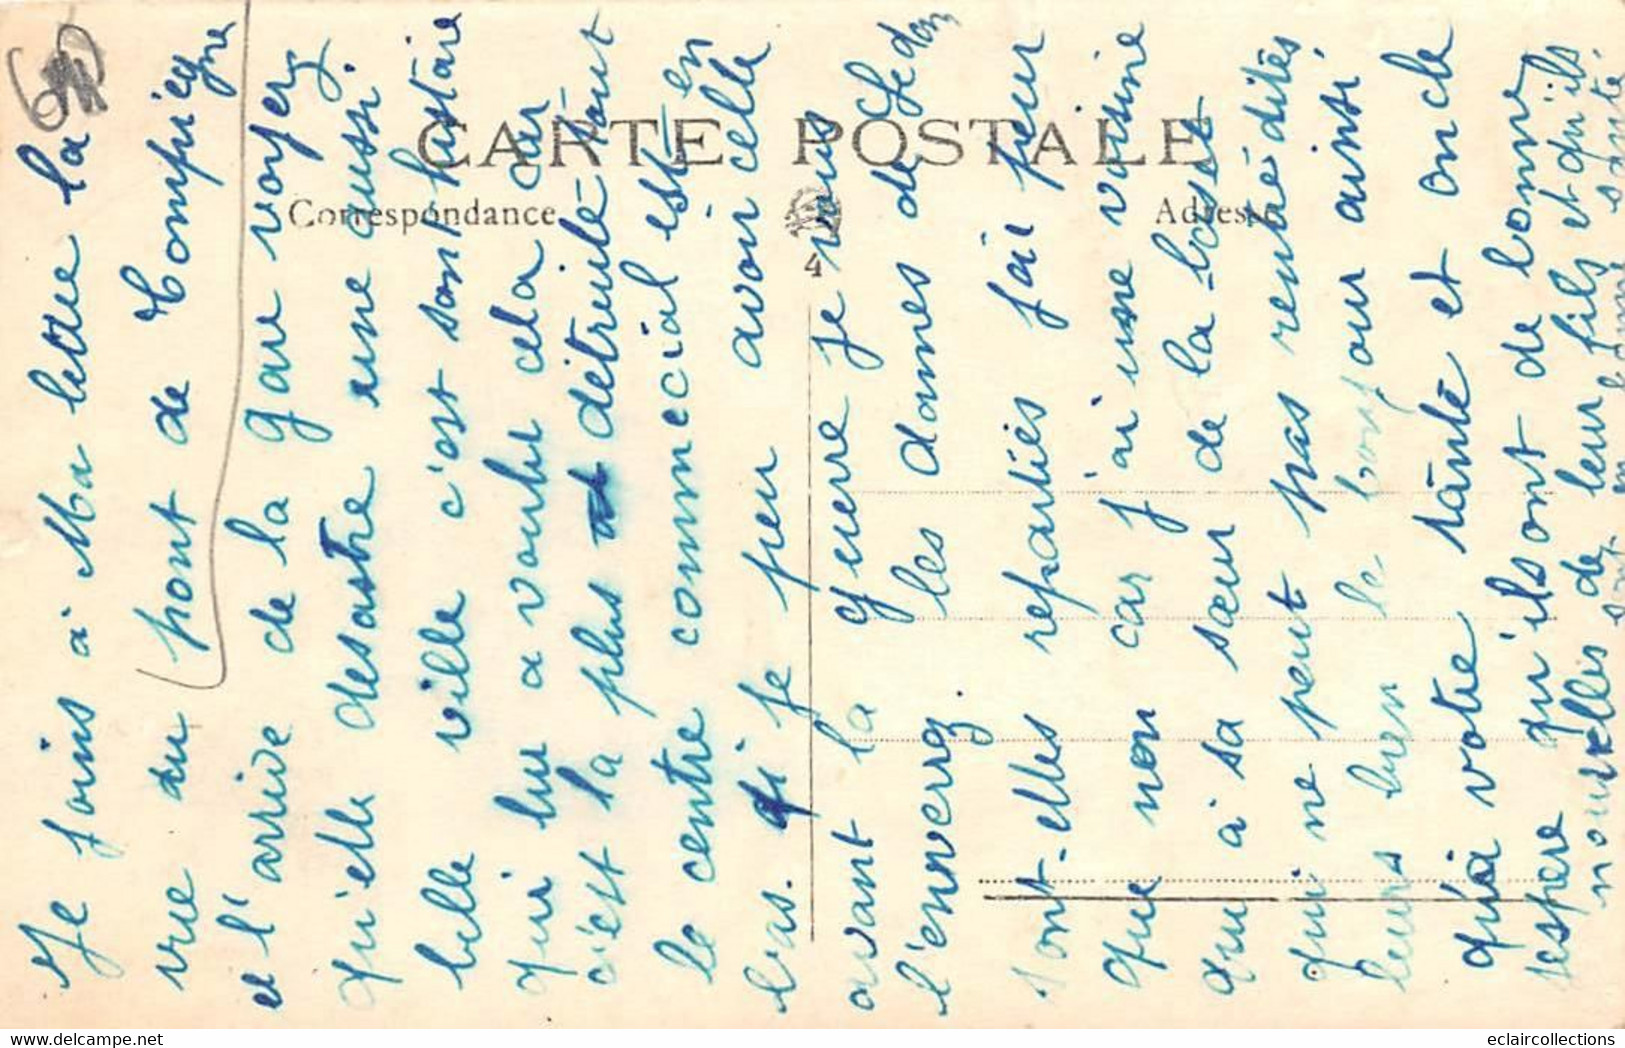 CARTE POSTALE
Correspondance
Adresse
4
60
Je joins à Ma lettre la
vue du pont de Compiègne
et l'arrivé de la gare voyez
qu'elle desastre une aussi
belle ville c'est son histoire
qui lui a voulue cela car
c'est la plus détruite tout
le centre commercial est en
bas. si je peu avoir celle
avant la guerre je vous
l'enverrez. les dames de
sont-elles reparties j'ai peur
que non car j'ai une voisine
qui à sa sœur de la-basse
qui ne peut pas rentré dités
leurs bien le bonjour ainsi
qu'a votre tante et oncle
j'espère qu'ils ont de bonne
nouvelles de leur fils et qu'ils
sont en bonne santé.
eclaircollections